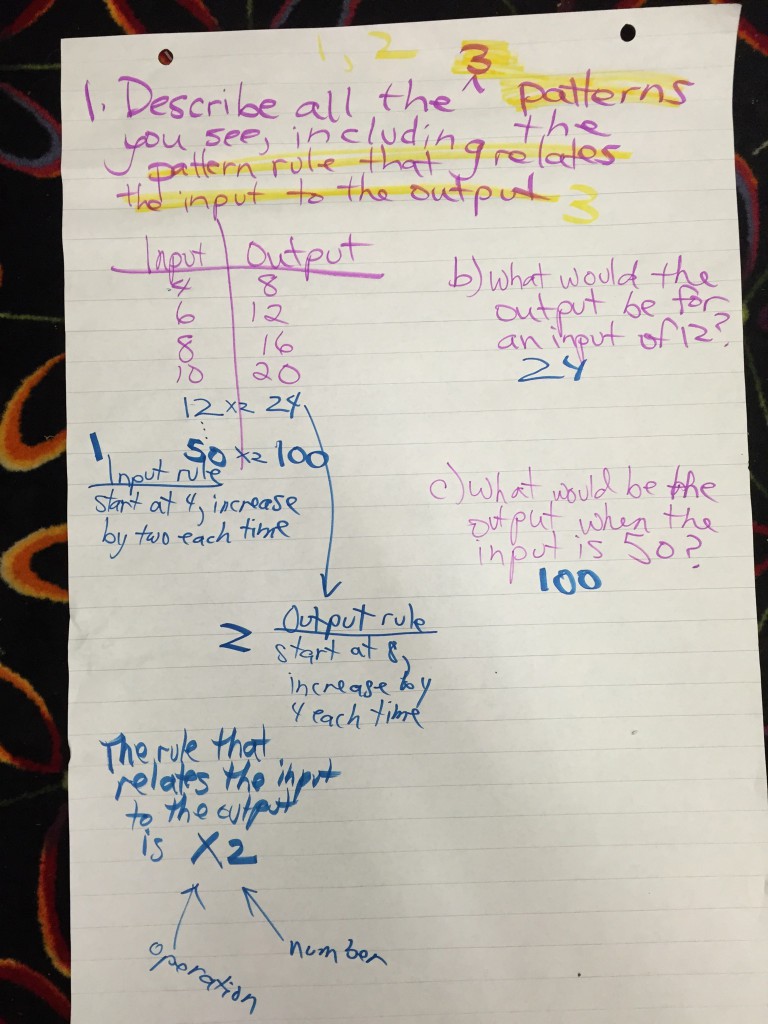 1, 2
3
1. Describe all the ^ patterns
you see, including the
pattern rule that relates
the input to the output 3
Input Output
4 8
6 12
8 16
10 20
12 x2 24
50 x2 100
b) What would the
output be for
an input of 12?
24
1
Input rule
start at 4, increase
by two each time
c) What would be the
output when the
input is 50?
100
2 Output rule
start at 8,
increase by
4 each time
The rule that
relates the input
to the output
is X2
operation
number